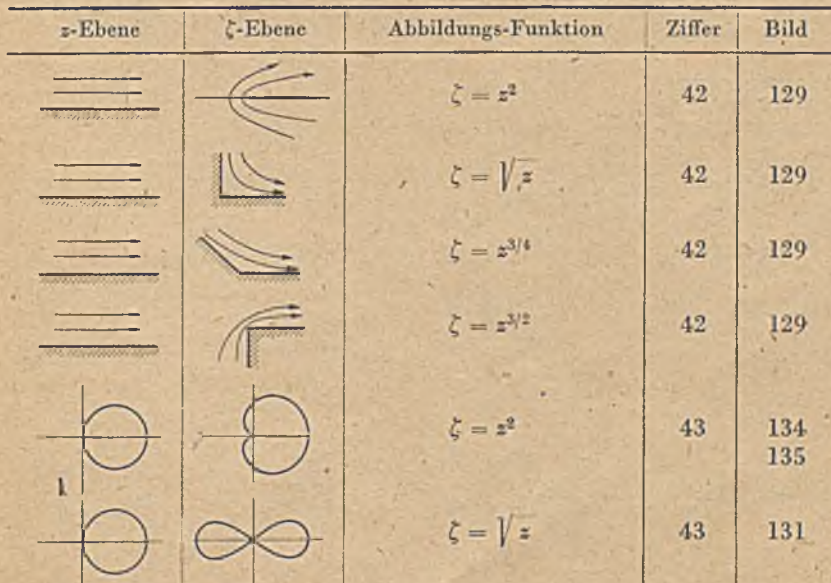 z-Ebene ζ-Ebene Abbildungs-Funktion Ziffer Bild
ζ = z² 42 129
ζ = √z 42 129
ζ = z^{3/4} 42 129
ζ = z^{3/2} 42 129
ζ = z² 43 134
135
ζ = √z 43 131